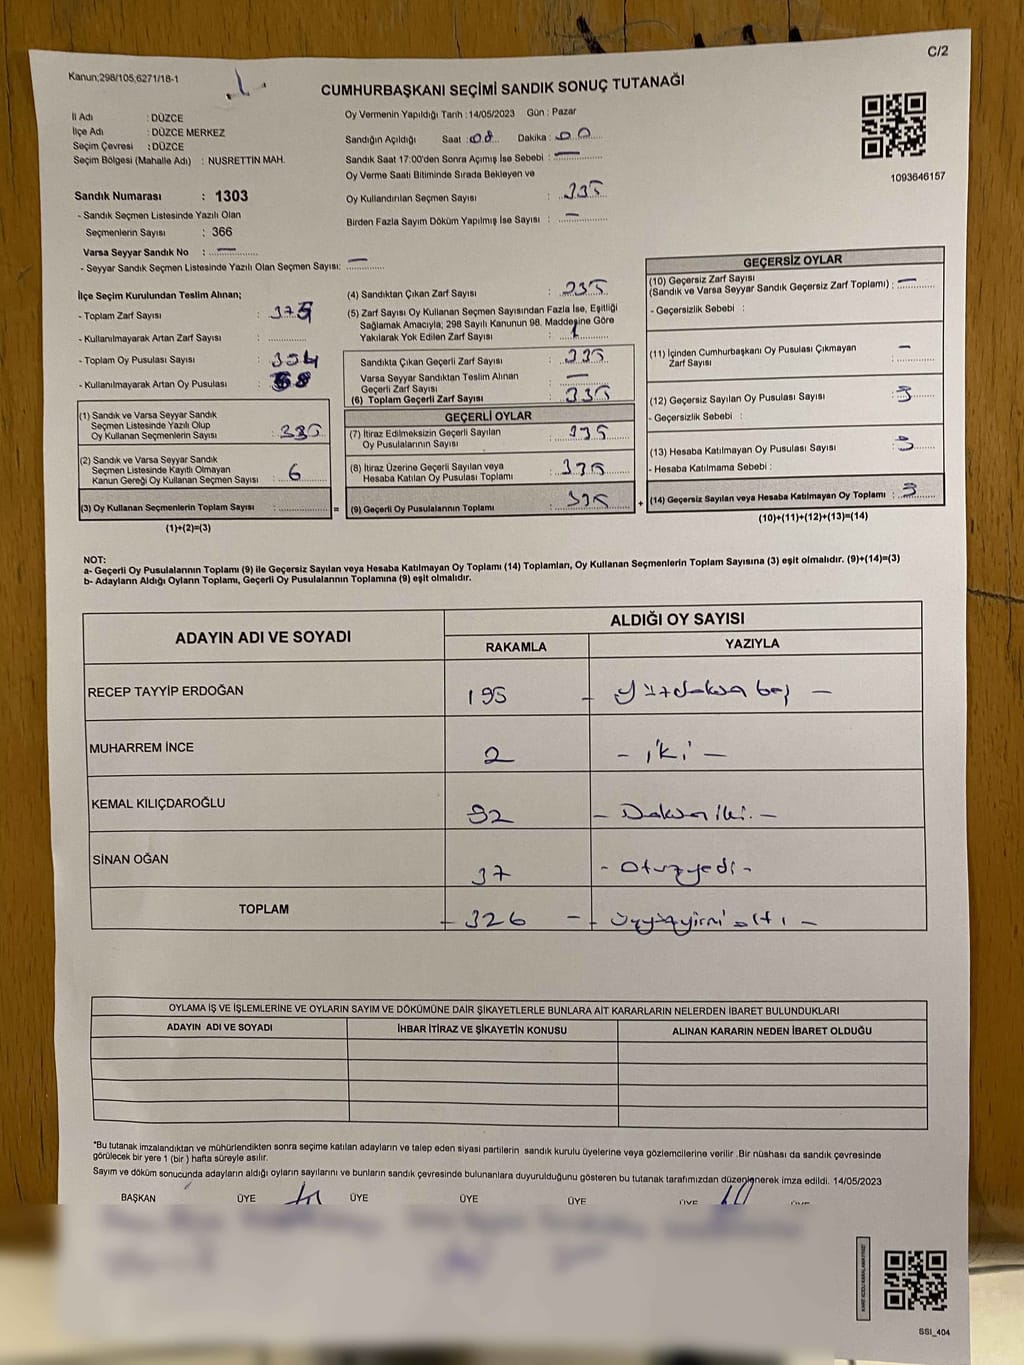 C/2
Kanun;298/105,6271/18-1
CUMHURBAŞKANI SEÇİMİ SANDIK SONUÇ TUTANAĞI
İl Adı : DÜZCE
İlçe Adı : DÜZCE MERKEZ
Seçim Çevresi : DÜZCE
Seçim Bölgesi (Mahalle Adı) : NUSRETTİN MAH.
Oy Vermenin Yapıldığı Tarih :14/05/2023 Gün : Pazar
Sandığın Açıldığı Saat : 08 Dakika : 00
Sandık Saat 17:00'den Sonra Açımış İse Sebebi : —
Oy Verme Saati Bitiminde Sırada Bekleyen ve
Oy Kullandırılan Seçmen Sayısı : 335
Birden Fazla Sayım Döküm Yapılmış İse Sayısı : —
1093646157
Sandık Numarası : 1303
- Sandık Seçmen Listesinde Yazılı Olan
Seçmenlerin Sayısı : 366
Varsa Seyyar Sandık No : —
- Seyyar Sandık Seçmen Listesinde Yazılı Olan Seçmen Sayısı: —
İlçe Seçim Kurulundan Teslim Alınan;
- Toplam Zarf Sayısı :
- Kullanılmayarak Artan Zarf Sayısı :
- Toplam Oy Pusulası Sayısı :
- Kullanılmayarak Artan Oy Pusulası :
(1) Sandık ve Varsa Seyyar Sandık
Seçmen Listesinde Yazılı Olup
Oy Kullanan Seçmenlerin Sayısı :
(2) Sandık ve Varsa Seyyar Sandık
Seçmen Listesinde Kayıtlı Olmayan
Kanun Gereği Oy Kullanan Seçmen Sayısı : 6
(3) Oy Kullanan Seçmenlerin Toplam Sayısı :
(1)+(2)=(3)
(4) Sandıktan Çıkan Zarf Sayısı : 335
(5) Zarf Sayısı Oy Kullanan Seçmen Sayısından Fazla İse, Eşitliği
Sağlamak Amacıyla; 298 Sayılı Kanunun 98. Maddesine Göre
Yakılarak Yok Edilen Zarf Sayısı : 1
Sandıkta Çıkan Geçerli Zarf Sayısı : 335
Varsa Seyyar Sandıktan Teslim Alınan
Geçerli Zarf Sayısı : —
(6) Toplam Geçerli Zarf Sayısı : 335
GEÇERLİ OYLAR
(7) İtiraz Edilmeksizin Geçerli Sayılan
Oy Pusulalarının Sayısı :
(8) İtiraz Üzerine Geçerli Sayılan veya
Hesaba Katılan Oy Pusulası Toplamı :
(9) Geçerli Oy Pusulalarının Toplamı :
GEÇERSİZ OYLAR
(10) Geçersiz Zarf Sayısı
(Sandık ve Varsa Seyyar Sandık Geçersiz Zarf Toplamı) : —
- Geçersizlik Sebebi :
(11) İçinden Cumhurbaşkanı Oy Pusulası Çıkmayan
Zarf Sayısı : —
(12) Geçersiz Sayılan Oy Pusulası Sayısı : 3
- Geçersizlik Sebebi :
(13) Hesaba Katılmayan Oy Pusulası Sayısı : 3
- Hesaba Katılmama Sebebi :
(14) Geçersiz Sayılan veya Hesaba Katılmayan Oy Toplamı : 3
(10)+(11)+(12)+(13)=(14)
NOT:
a- Geçerli Oy Pusulalarının Toplamı (9) ile Geçersiz Sayılan veya Hesaba Katılmayan Oy Toplamı (14) Toplamları, Oy Kullanan Seçmenlerin Toplam Sayısına (3) eşit olmalıdır. (9)+(14)=(3)
b- Adayların Aldığı Oyların Toplamı, Geçerli Oy Pusulalarının Toplamına (9) eşit olmalıdır.
ADAYIN ADI VE SOYADI
ALDIĞI OY SAYISI
RAKAMLA YAZIYLA
RECEP TAYYİP ERDOĞAN 195 – yüzdoksan beş –
MUHARREM İNCE 2 – iki –
KEMAL KILIÇDAROĞLU 92 – Doksan iki. –
SİNAN OĞAN 37 – otuzyedi –
TOPLAM – 326 – – üçyüzyirmi altı –
OYLAMA İŞ VE İŞLEMLERİNE VE OYLARIN SAYIM VE DÖKÜMÜNE DAİR ŞİKAYETLERLE BUNLARA AİT KARARLARIN NELERDEN İBARET BULUNDUKLARI
ADAYIN ADI VE SOYADI İHBAR İTİRAZ VE ŞİKAYETİN KONUSU ALINAN KARARIN NEDEN İBARET OLDUĞU
*Bu tutanak imzalandıktan ve mühürlendikten sonra seçime katılan adayların ve talep eden siyasi partilerin sandık kurulu üyelerine veya gözlemcilerine verilir .Bir nüshası da sandık çevresinde
görülecek bir yere 1 (bir ) hafta süreyle asılır.
Sayım ve döküm sonucunda adayların aldığı oyların sayılarını ve bunların sandık çevresinde bulunanlara duyurulduğunu gösteren bu tutanak tarafımızdan düzenlenerek imza edildi. 14/05/2023
BAŞKAN ÜYE ÜYE ÜYE ÜYE ÜYE ÜYE
SSI_404